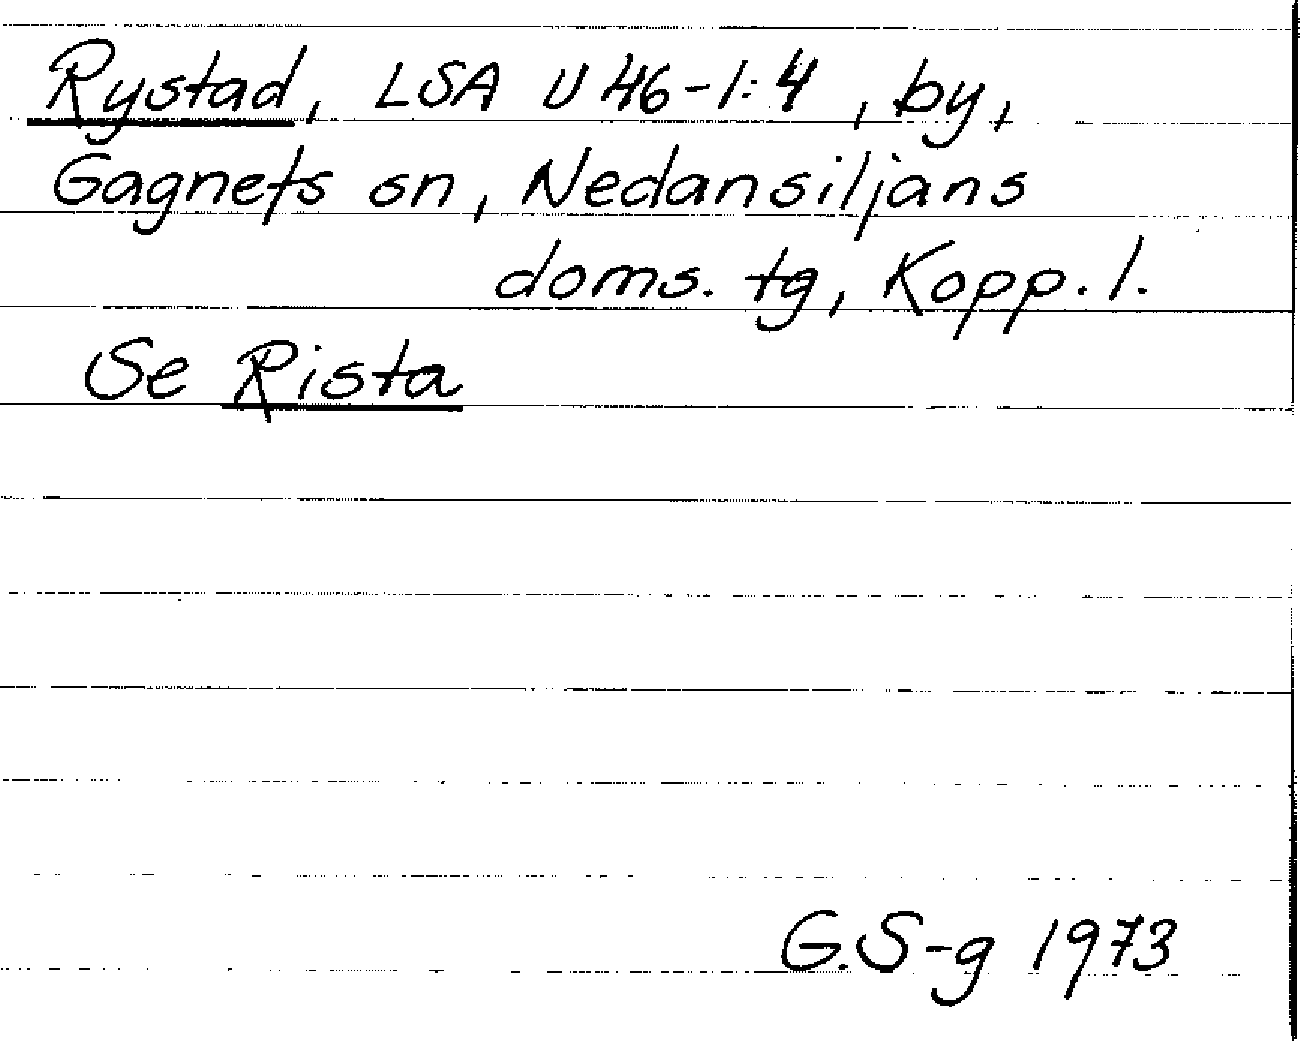 Rystad, LSA U 46-1:4, by,
Gagnefs sn, Nedansiljans
doms. tg, Kopp. l.
Se Rista
G.S-g 1973